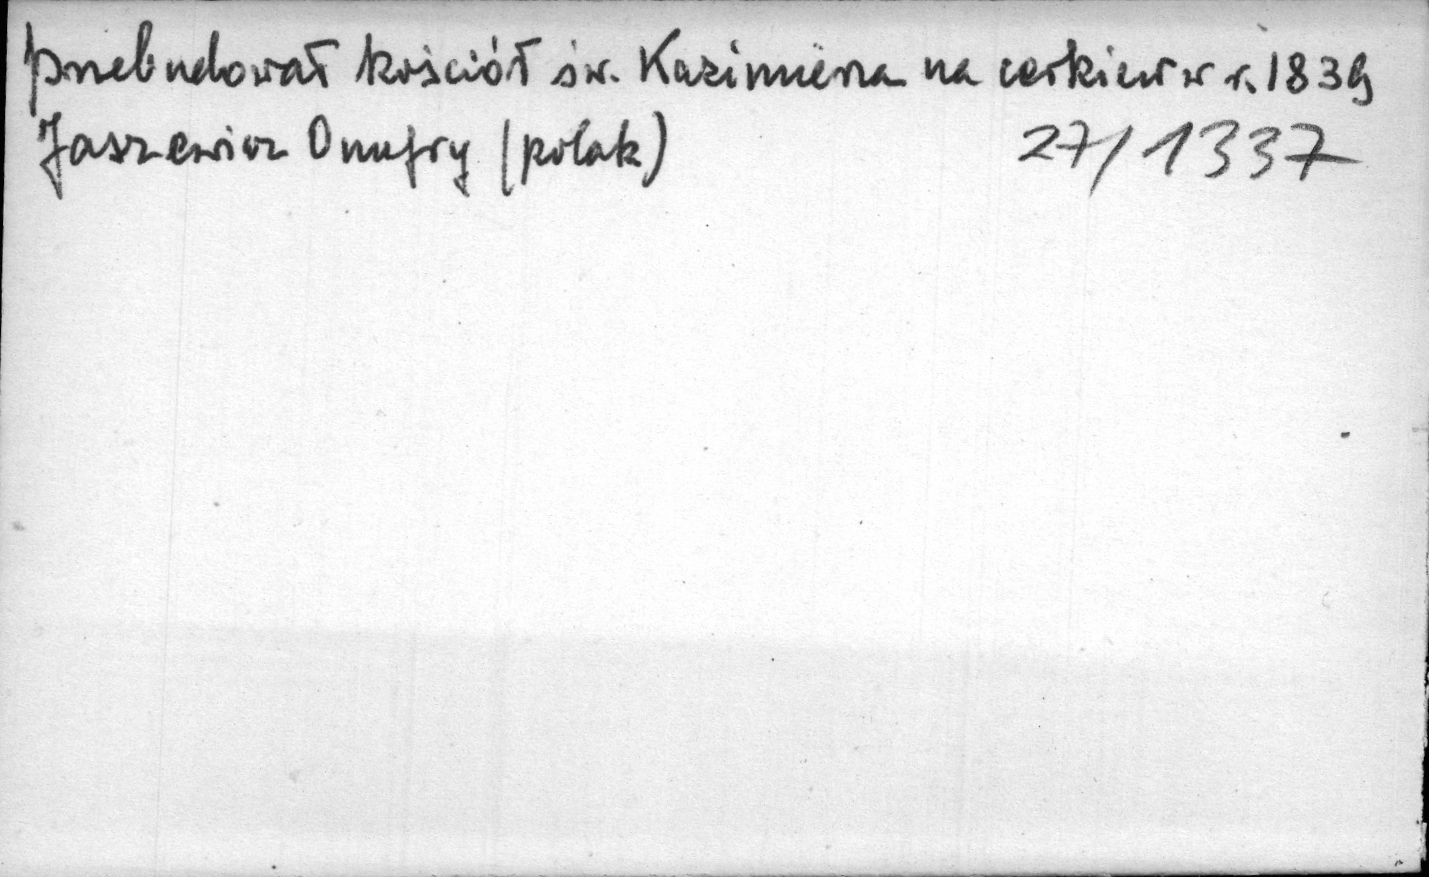 przebudował kościół św. Kazimierza na cerkiew w r. 1839
Jaszewicz Onufry (polak) 27/1337